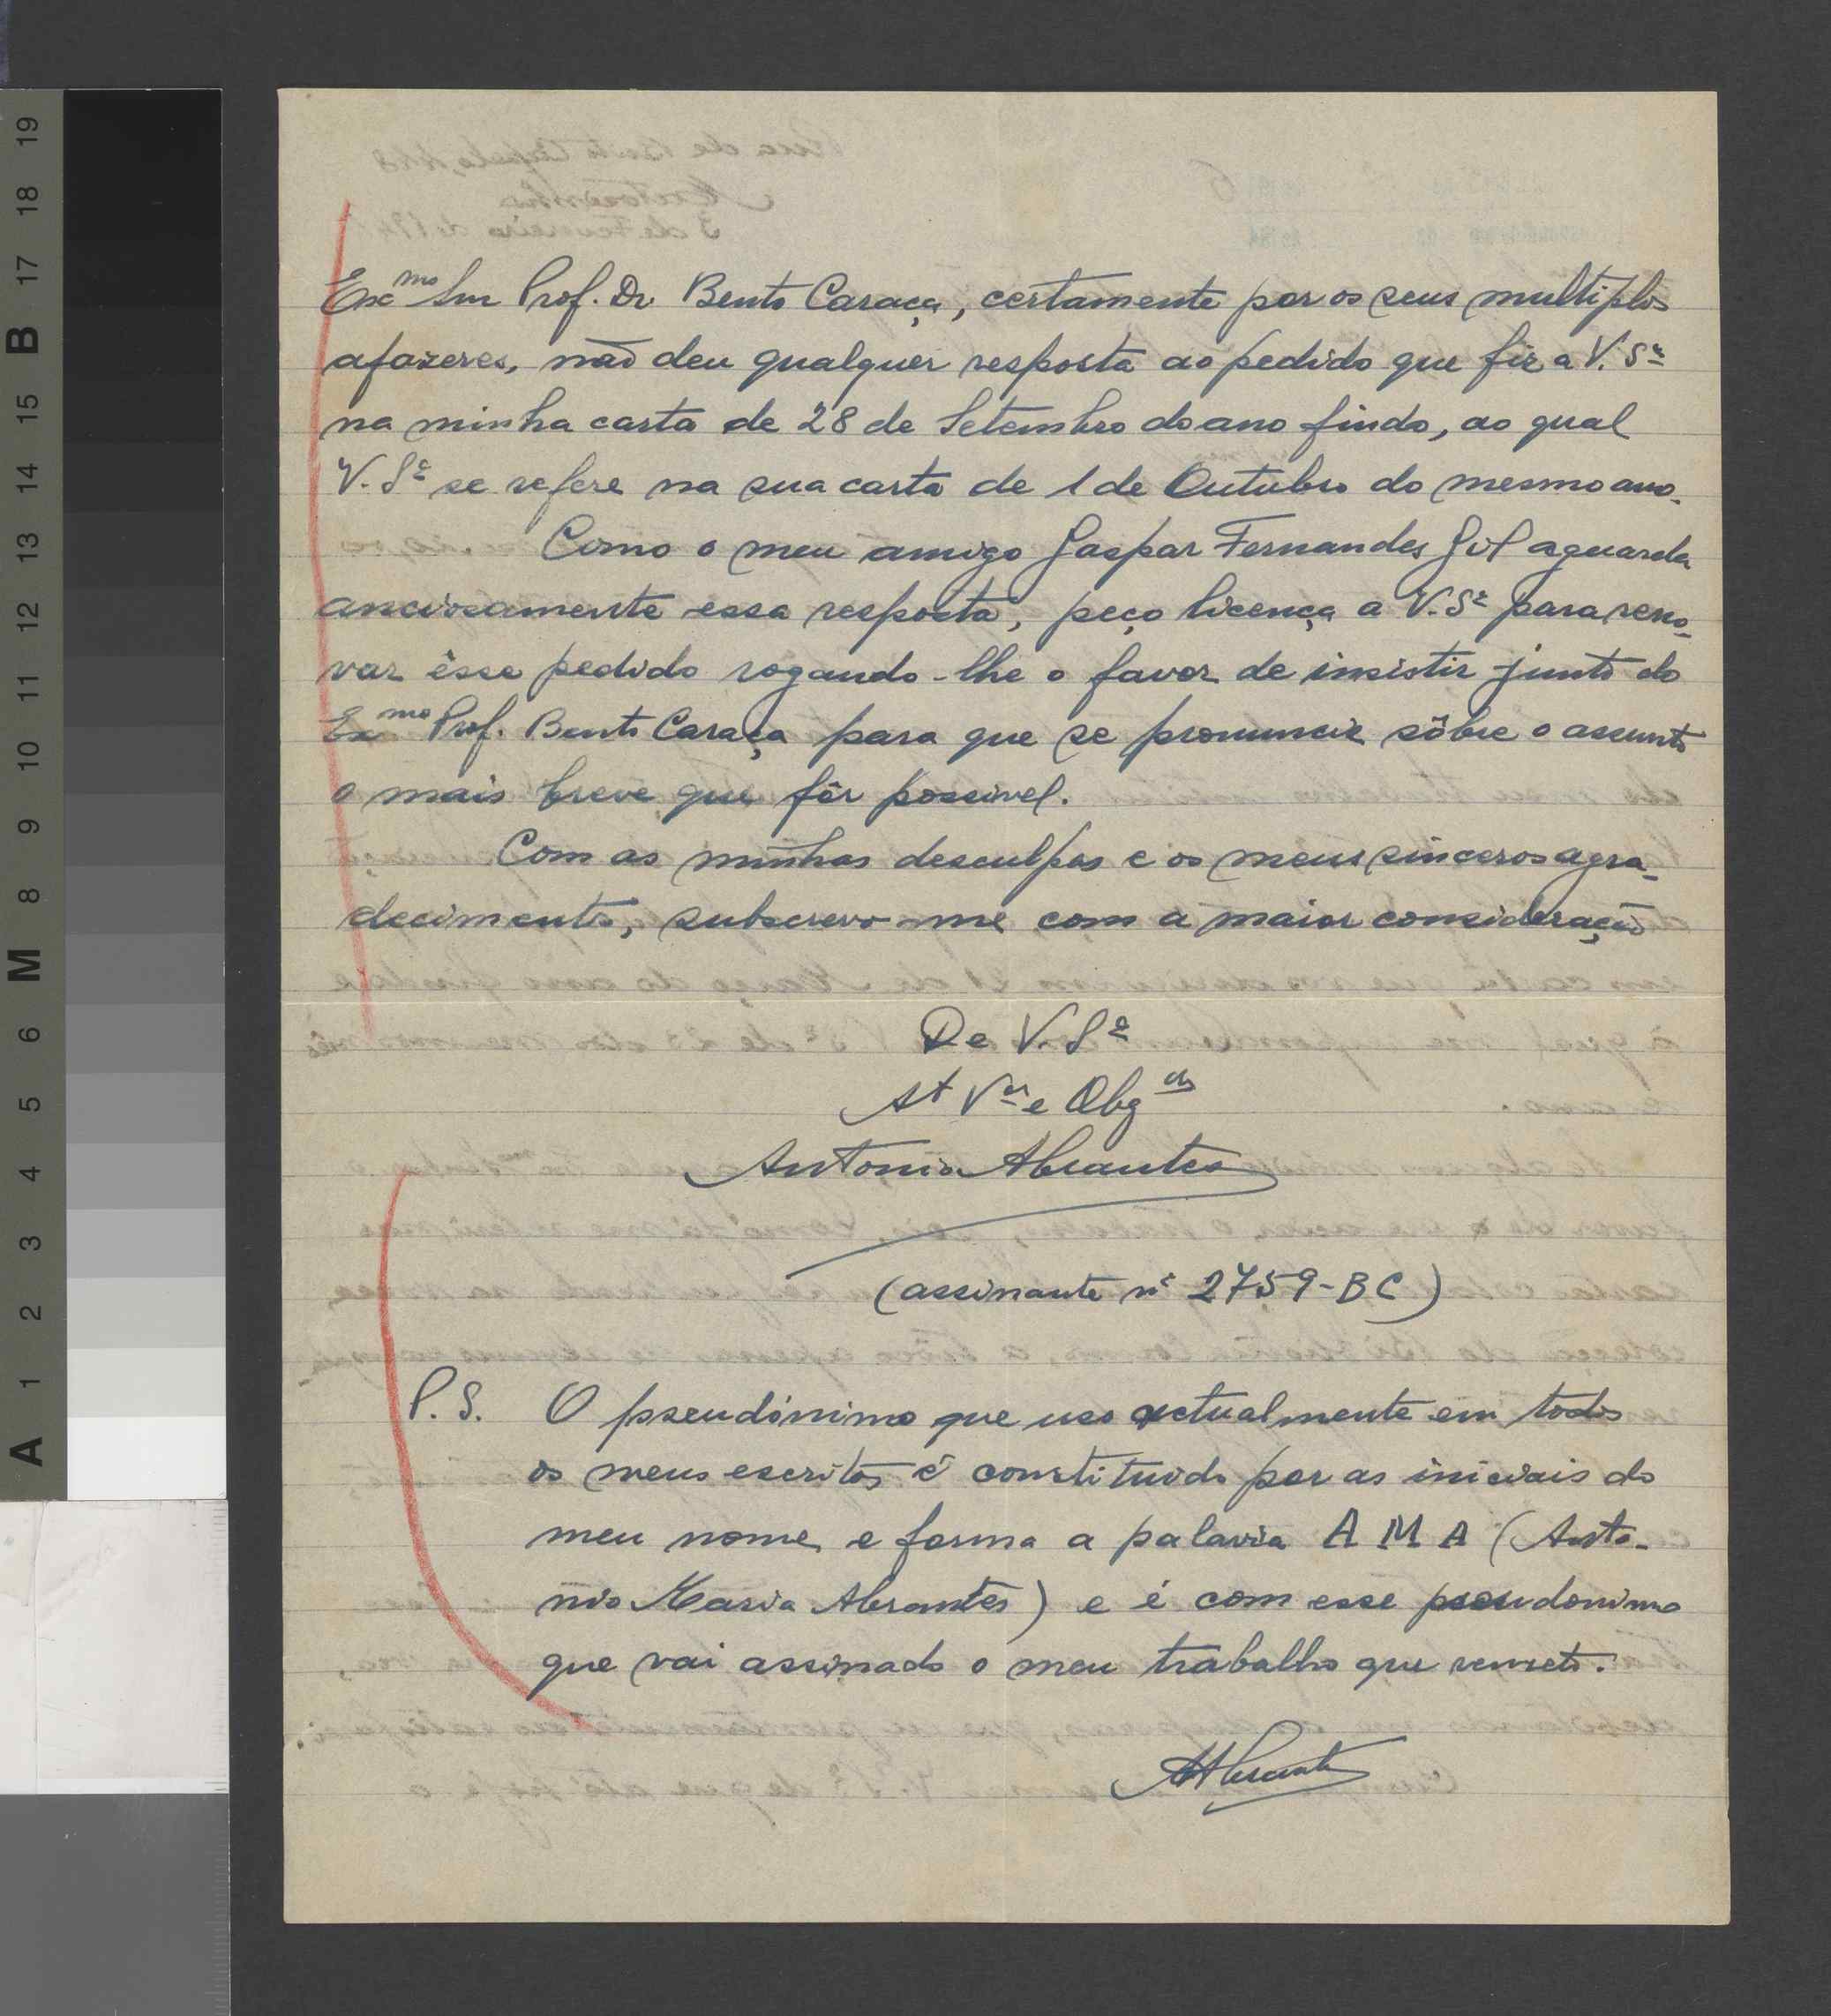 Exc.mo Snr Prof. Dr. Bento Caraça, certamente por os seus multiplos
afazeres, não deu qualquer resposta ao pedido que fiz a V. Sª
na minha carta de 28 de Setembro do ano findo, ao qual
V. Sª se refere na sua carta de 1 de Outubro do mesmo ano.
Como o meu amigo Gaspar Fernandes Gil aguarda
anciosamente essa resposta, peço licença a V. Sª para reno-
var êsse pedido rogando-lhe o favor de insistir junto do
Ex.mo Prof. Bento Caraça para que se pronuncie sôbre o assunto
o mais breve que fôr possivel.
Com as minhas desculpas e os meus sinceros agra-
decimentos, subscrevo-me com a maior consideração
De V. Sª
At.º V.or e Obg.do
Antonio Abrantes
(assinante nº 2759-BC)
P. S. O pseudónimo que uso actualmente em todos
os meus escritos é constituido por as iniciais do
meu nome e forma a palavra A M A (Anto-
nio Maria Abrantes) e é com esse pseudonimo
que vai assinado o meu trabalho que remeto.
AAbrantes
A 1 2 3 4 5 6 M 8 9 10 11 12 13 14 15 B 17 18 19